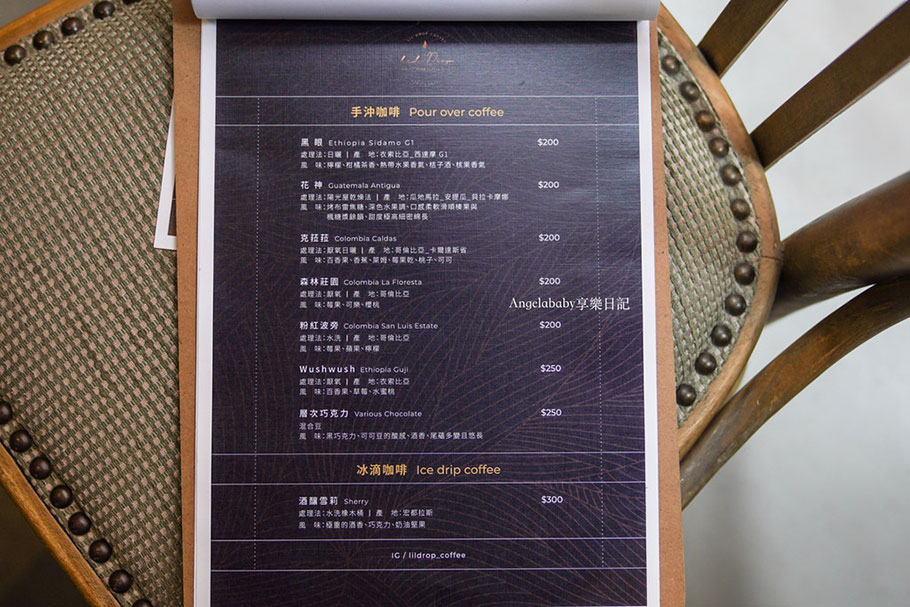 手沖咖啡 Pour over coffee
黑 眼 Ethiopia Sidamo G1 $200
處理法：日曬 | 產 地：衣索比亞_西達摩 G1
風 味：檸檬、柑橘茶香、熱帶水果香氣、桔子酒、核果香氣
花 神 Guatemala Antigua $200
處理法：陽光屋乾燥法 | 產 地：瓜地馬拉_安提瓜_貝拉卡摩娜
風 味：烤布雷焦糖、深色水果調、口感柔軟滑順榛果與
楓糖漿餘韻、甜度極高細密綿長
克菈菈 Colombia Caldas $200
處理法：厭氧日曬 | 產 地：哥倫比亞_卡爾達斯省
風 味：百香果、香蕉、萊姆、莓果乾、桃子、可可
森林莊園 Colombia La Floresta $200
處理法：厭氧 | 產 地：哥倫比亞
風 味：莓果、可樂、櫻桃
Angelababy享樂日記
粉紅波旁 Colombia San Luis Estate $200
處理法：水洗 | 產 地：哥倫比亞
風 味：莓果、蘋果、檸檬
Wushwush Ethiopia Guji $250
處理法：厭氧 | 產 地：衣索比亞
風 味：百香果、草莓、水蜜桃
層次巧克力 Various Chocolate $250
混合豆
風 味：黑巧克力、可可豆的酸感、酒香、尾蘊多變且悠長
冰滴咖啡 Ice drip coffee
酒釀雪莉 Sherry $300
處理法：水洗橡木桶 | 產 地：宏都拉斯
風 味：極重的酒香、巧克力、奶油堅果
IG / lildrop_coffee